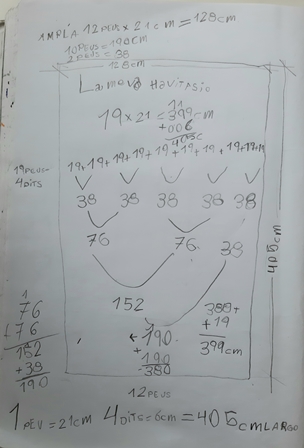 AMPLÍA 12 PEUS x 21 cm = 128 cm
10 PEUS = 190 CM
2 PEUS = 38
128 cm
La meva Havitasio
11
19 x 21 = 399 cm
+ 006
405c
19+19+19+19+19+19+19+19+19+19
19 PEUS-
4 DITS
38 38 38 38 38
76 76. 38
405 cm
152
1
76
+76
152
+38
190
190
+
190
380
380+
+19
399 cm
12 PEUS
1 PEU = 21 cm 4 DITS = 6 cm = 405 cm LARGO